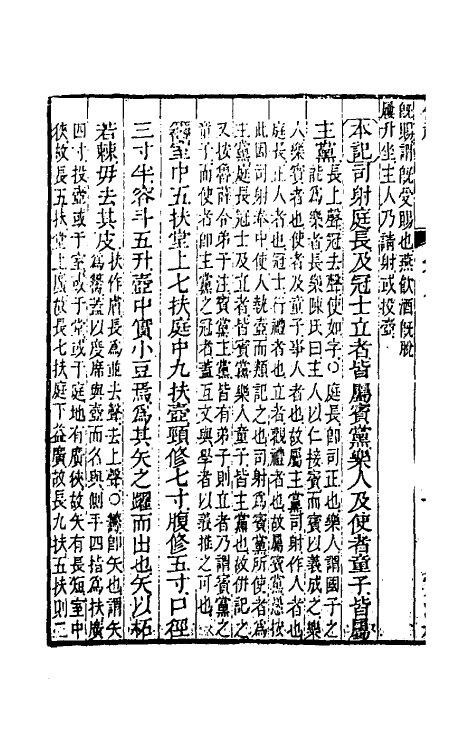 既賜謂既受賜也燕飲酒既脫
屨升坐主人乃請射或投壺
本記司射庭長及冠士立者皆屬賓黨樂人及使者童子皆屬
主黨
長上聲冠去聲使如字○庭長即司正也樂人謂國子之
能為樂者長樂陳氏曰主人以仁接賓而賓以義成之樂
人樂賓者也使者及童子事人者也故屬主黨司射作人者也
庭長正人者也冠士行禮者也立者觀禮者也故屬賓黨愚按
此因司射奉中使人執壺而類記之也司射為賓黨所使者為
主黨庭長冠士及立者皆賓黨樂人童子皆主黨也故併記之
又按魯薛令弟子注賓黨主黨皆有弟子則立者乃謂賓黨之
童子而使者即主黨之冠者蓋互文與學者以義推之可也
籌室中五扶堂上七扶庭中九扶壺頸修七寸腹修五寸口徑
三寸半容斗五升壺中實小豆焉為其矢之躍而出也矢以柘
若棘毋去其皮
扶作膚長為並去聲去上聲○籌即矢也謂矢
為籌蓋以度席與壺而名與側手四指為扶廣
四寸投壺或于室或于堂或于庭地有廣狹故矢有長短室中
狹故長五扶堂上廣故長七扶庭下益廣故長九扶五扶則二